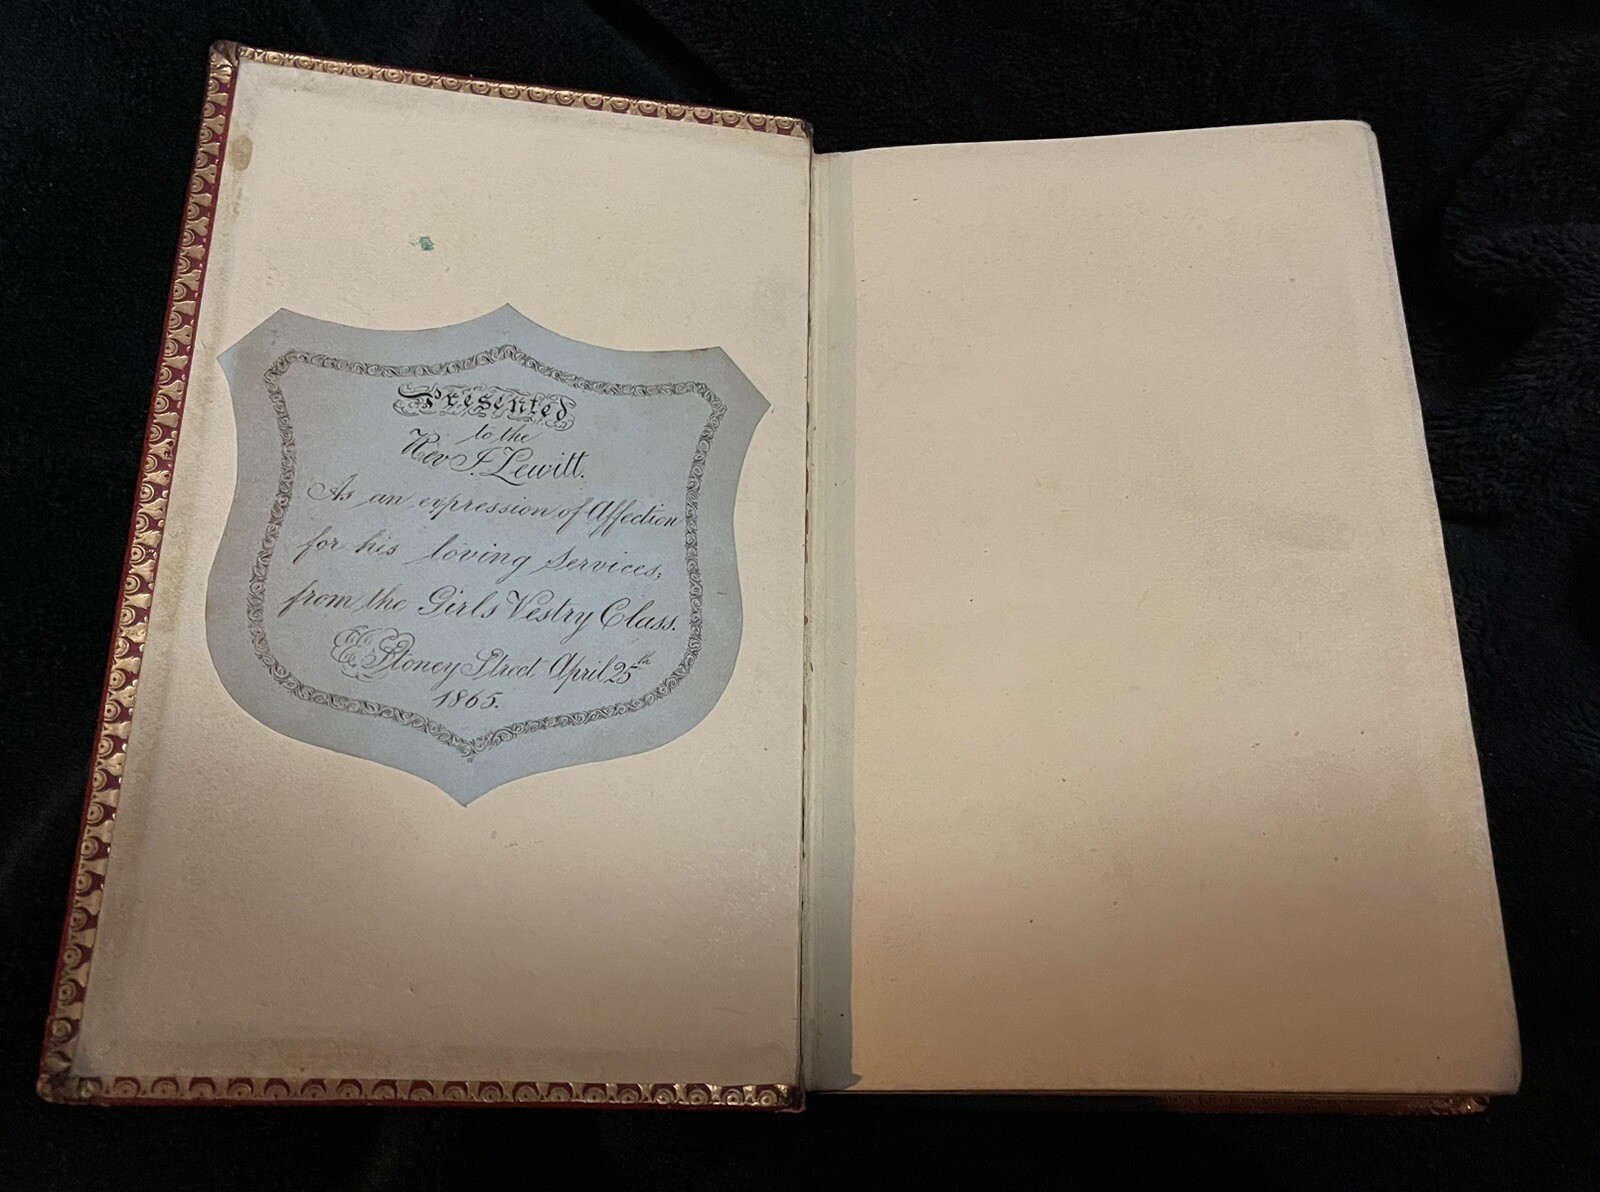 Presented
to the
Rev J. Lewitt.
As an expression of Affection
for his loving Services,
from the Girls Vestry Class.
Stoney Street April 25th
1865.